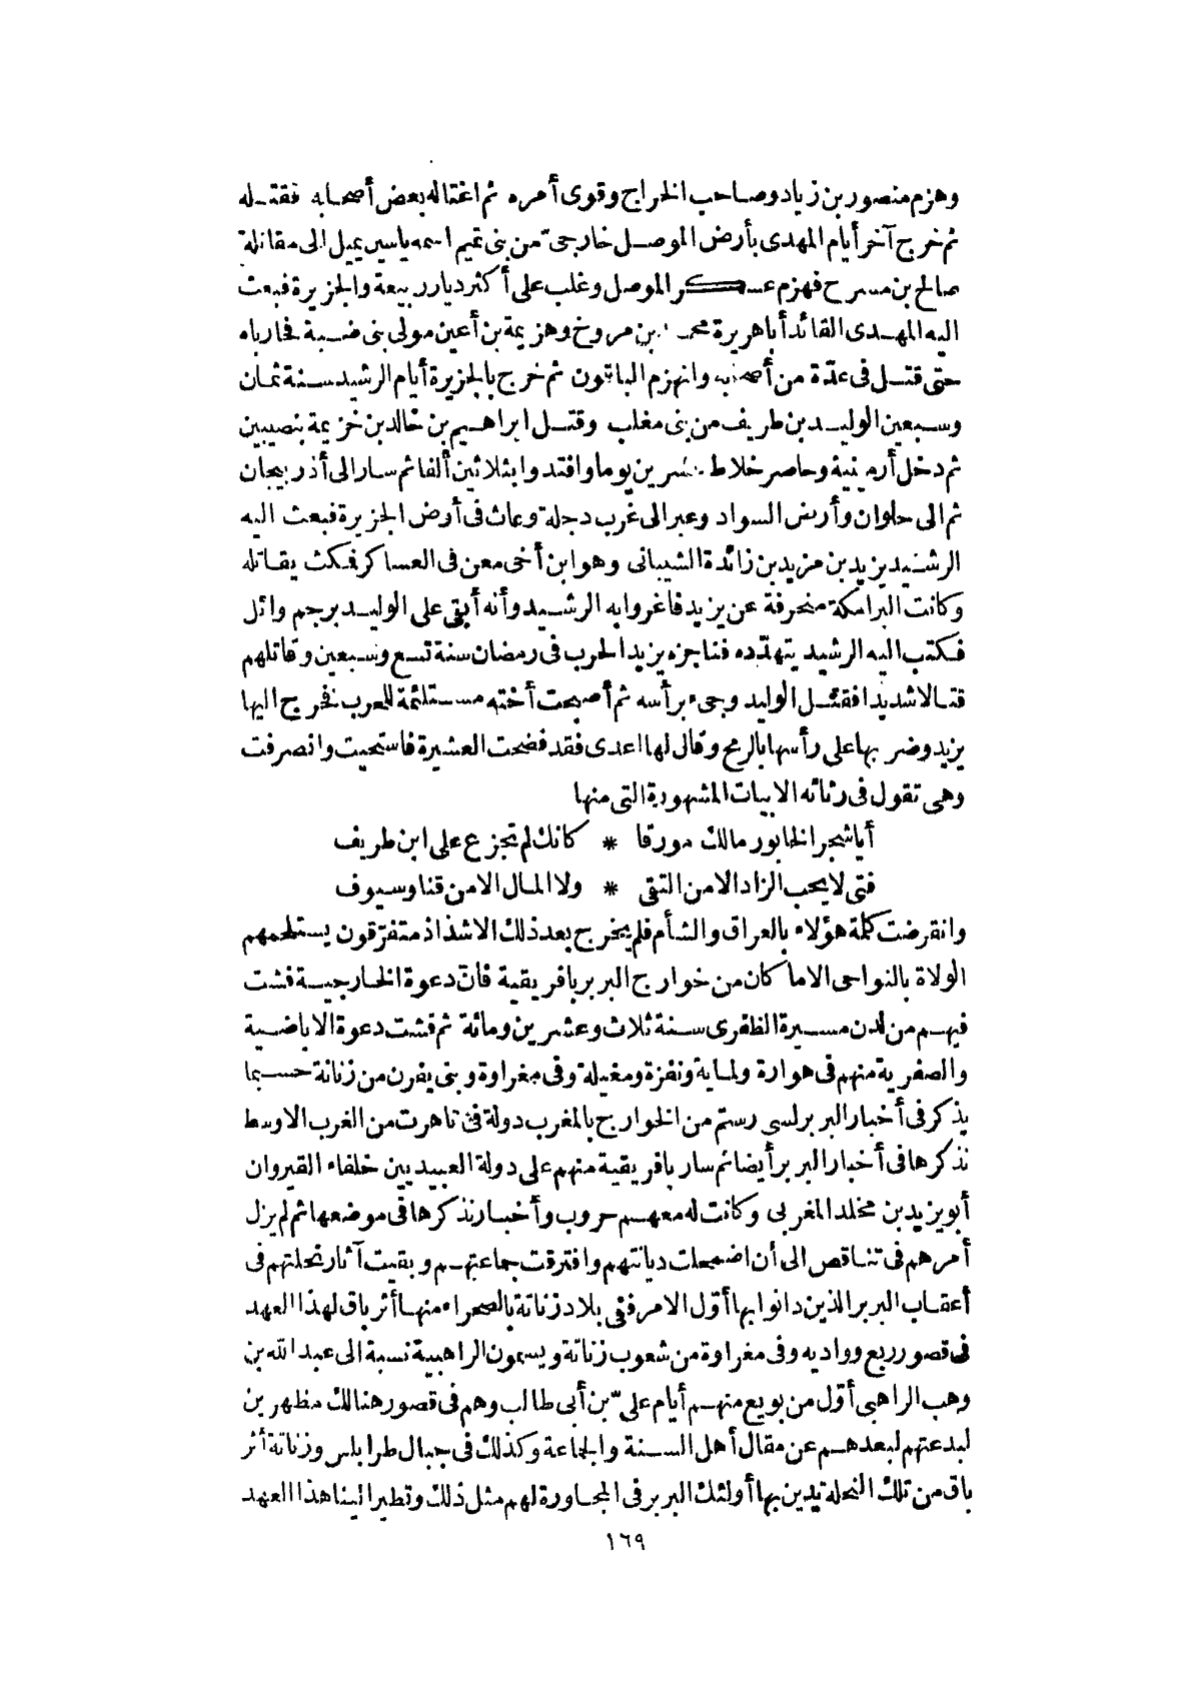 وهزم منصور بن زياد وصاحب الخراج وقوى أمره ثم اغتاله بعض أصحابه فقتله
ثم خرج آخر أيام المهدى بأرض الموصل خارجىّ من بنى تميم اسمه ياسين يميل الى مقاتلة
صالح بن مسرح فهزم عسكر الموصل وغلب على أكثر ديار ربيعة والجزيرة فبعث
اليه المهدى القائد أبا هريرة محمد بن مروخ وهزيمة بن أعين مولى بنى ضبة فحارباه
حتى قتل فى عدّة من أصحابه وانهزم الباقون ثم خرج بالجزيرة أيام الرشيد سنة ثمان
وسبعين الوليد بن طريف من بنى مغلب وقتل ابراهيم بن خالد بن خزيمة بنصيبين
ثم دخل أرمينية وحاصر خلاط عشرين يوما وافتدوا بثلاثين ألفا ثم سار الى أذربيجان
ثم الى حلوان وأرض السواد وعبر الى غرب دجلة وعاث فى أرض الجزيرة فبعث اليه
الرشيد يزيد بن مزيد بن زائدة الشيبانى وهو ابن أخى معن فى العساكر فمكث يقاتله
وكانت البرامكة منحرفة عن يزيد فاغروا به الرشيد وأنه أبقى على الوليد برجم وائل
فكتب اليه الرشيد يتهدّده فناجزه يزيد الحرب فى رمضان سنة تسع وسبعين وقاتلهم
قتالا شديدا فقتل الوليد وجىء برأسه ثم أصبحت أخته مستلئمة للحرب فخرج اليها
يزيد وضربها على رأسها بالرمح وقال لها اعدى فقد فضحت العشيرة فاستحيت وانصرفت
وهى تقول فى رثائه الابيات المشهورة التى منها
أيا شجر الخابور مالك مورقا * كانك لم تجزع على ابن طريف
فتى لا يحب الزاد الا من التقى * ولا المال الا من قنا وسيوف
وانقرضت كلمة هؤلاء بالعراق والشأم فلم يخرج بعد ذلك الا شذاذ متفرّقون يستلحمهم
الولاة بالنواحى الا ما كان من خوارج البربر بافريقية فانّ دعوة الخارجية فشت
فيهم من لدن مسيرة الظفرى سنة ثلاث وعشرين ومائة ثم فشت دعوة الاباضية
والصفرية منهم فى هوارة ولماية ونفزة ومغيلة وفى مغراوة وبنى يفرن من زناتة حسبما
يذكر فى أخبار البربر لسى رستم من الخوارج بالمغرب دولة فى تاهرت من الغرب الاوسط
نذكرها فى أخبار البربر أيضا ثم سار بافريقية منهم على دولة العبيديين خلفاء القيروان
أبو يزيد بن مخلد المغربى وكانت له معهم حروب وأخبار نذكرها فى موضعها ثم لم يزل
أمرهم فى تناقص الى أن اضمحلت ديانتهم وافترقت جماعتهم وبقيت آثار نحلتهم فى
أعقاب البربر الذين دانوا بها أوّل الامر ففى بلاد زناتة بالصحراء منها أثر باق لهذا العهد
فى قصور ربع وواديه وفى مغراوة من شعوب زناتة ويسمون الراهبية نسبة الى عبد الله بن
وهب الراهبى أوّل من بويع منهم أيام علىّ بن أبى طالب وهم فى قصور هنالك مظهرين
لبدعتهم لبعدهم عن مقال أهل السنة والجماعة وكذلك فى جبال طرابلس وزناتة أثر
باق من تلك النحلة يدين بها أولئك البربر فى المجاورة لهم مثل ذلك وتطير الينا هذا العهد
١٦٩